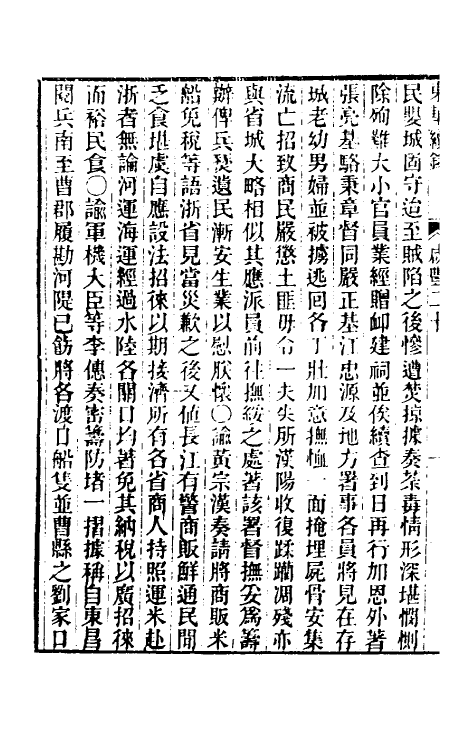 東華續錄 咸豐二十
民嬰城固守迨至賊陷之後慘遭焚掠據奏荼毒情形深堪憫惻
除殉難大小官員業經贈卹建祠並俟續查到日再行加恩外著
張亮基駱秉章督同嚴正基江忠源及地方署事各員將見在存
城老幼男婦並被擄逃回各丁壯加意撫恤一面掩埋屍骨安集
流亡招致商民嚴懲土匪毋令一夫失所漢陽收復蹂躪凋殘亦
與省城大略相似其應派員前往撫綏之處著該署督撫妥為籌
辦俾兵燹遺民漸安生業以慰朕懷〇諭黃宗漢奏請將商販米
船免稅等語浙省見當災歉之後又値長江有警商販鮮通民間
乏食堪虞自應設法招徠以期接濟所有各省商人持照運米赴
浙者無論河運海運經過水陸各關口均著免其納稅以廣招徠
而裕民食〇諭軍機大臣等李僡奏密籌防堵一摺據稱自東昌
閱兵南至曹郡履勘河隄已飭將各渡口船隻並曹縣之劉家口